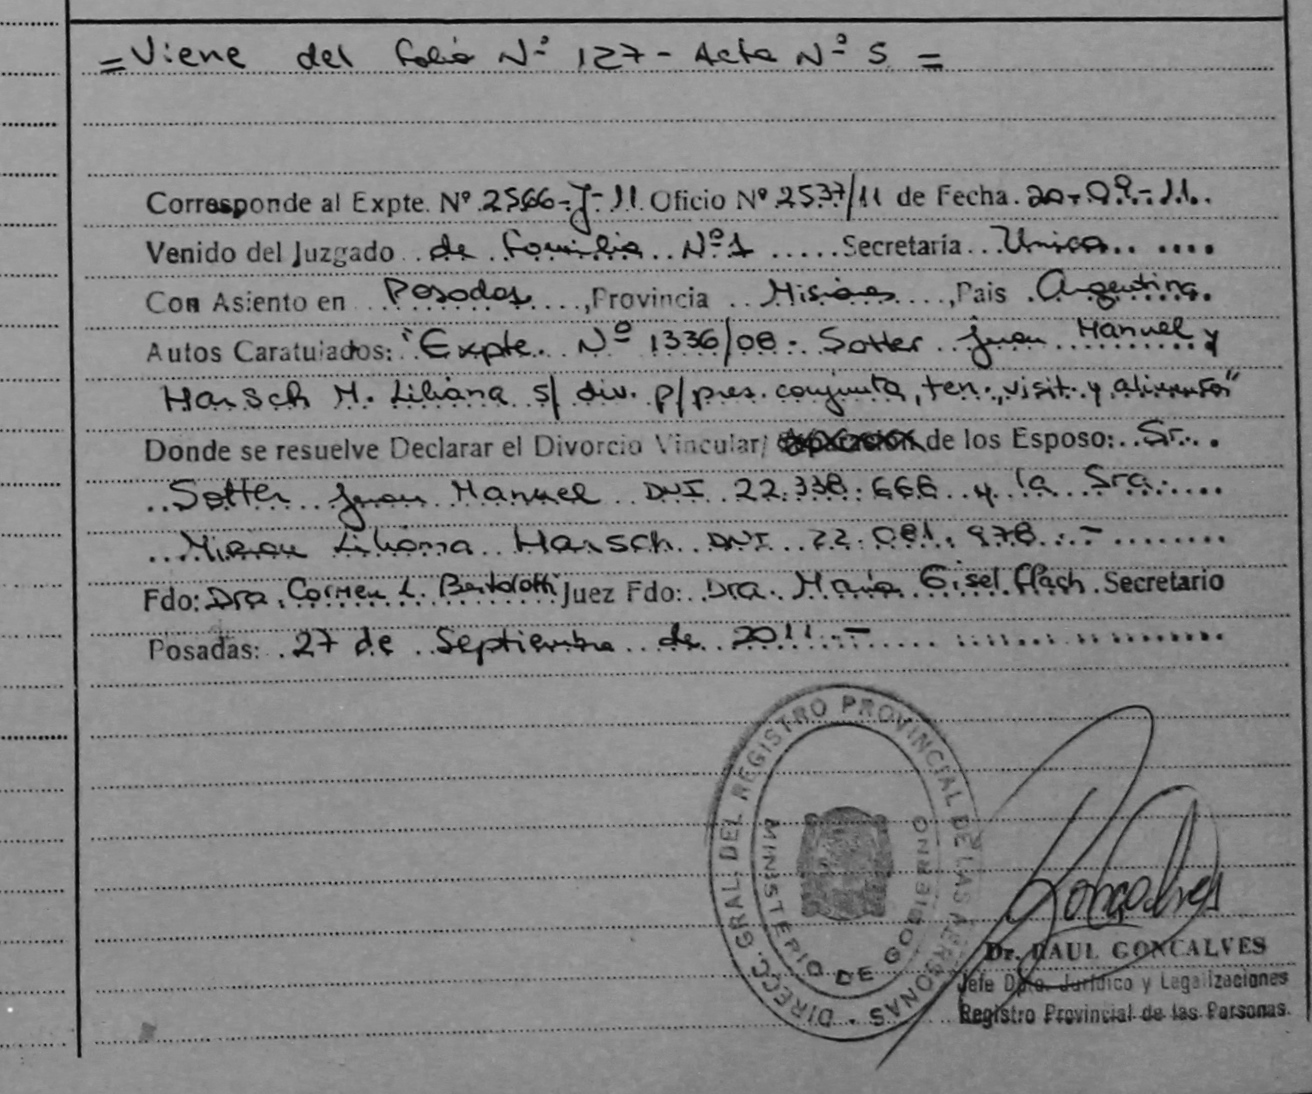 = Viene del folio Nº 127 - Acta Nº 5 =
Corresponde al Expte. Nº 2566-J-11 Oficio Nº 2537/11 de Fecha 20-09-11.
Venido del Juzgado de Familia Nº1 Secretaría Unica
Con Asiento en Posadas, Provincia Misiones, Pais Argentina.
Autos Caratulados: "Expte. Nº 1336/08 - Sotter Juan Manuel y
Harsch M. Liliana s/ div. p/ pres. conjunta, ten., visit. y alimentos"
Donde se resuelve Declarar el Divorcio Vincular/ de los Esposo: Sr.
Sotter Juan Manuel DNI 22.338.666 y la Sra.
Miriam Liliana Harsch DNI 22.081.978.-
Fdo: Dra. Carmen L. Bertolotti Juez Fdo: Dra. María Gisel Flach Secretario
Posadas: 27 de Septiembre de 2011.-
DIRECC. GRAL. DEL REGISTRO PROVINCIAL DE LAS PERSONAS
MINISTERIO DE GOBIERNO
Dr. RAUL GONCALVES
Jefe Dpto. Jurídico y Legalizaciones
Registro Provincial de las Personas